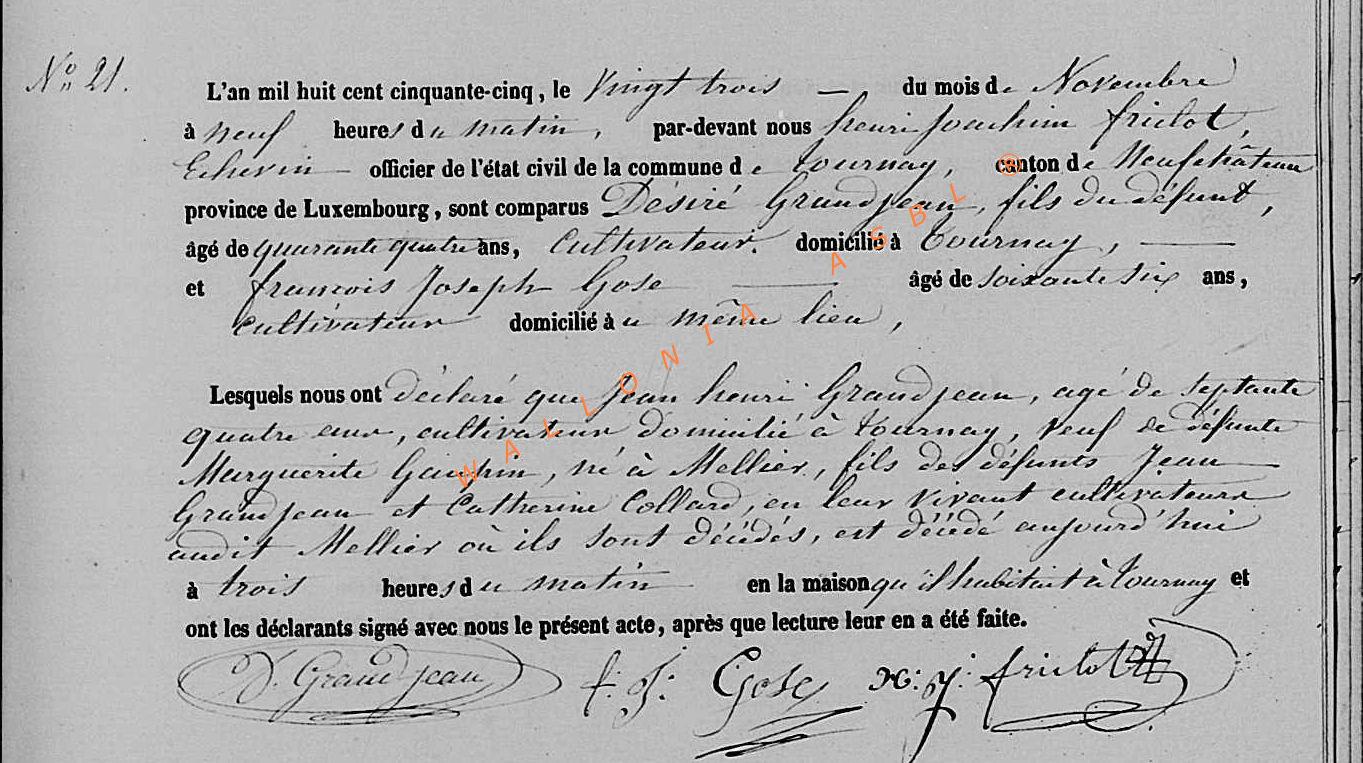 No 21.
L'an mil huit cent cinquante-cinq, le Vingt trois — du mois de Novembre
à neuf heures du matin, par-devant nous henri Joachim friclot,
Echevin — officier de l'état civil de la commune de tournay, canton de Neufchâteau
province de Luxembourg, sont comparus Désiré Grandjean, fils du défunt,
âgé de quarante quatre ans, Cultivateur. domicilié à tournay, —
et françois Joseph Gose — âgé de soixante six ans,
cultivateur domicilié à u même lieu,
Lesquels nous ont déclaré que Jean henri Grandjean, agé de septante
quatre ans, cultivateur domicilié à tournay, veuf de défunte
Marguerite, né à Mellier, fils des défunts Jean
Grandjean et Catherine Collard, en leur vivant cultivateurs
audit Mellier où ils sont décédés, est décédé aujourd'hui
à trois heures du matin en la maison qu'il habitait à tournay et
ont les déclarants signé avec nous le présent acte, après que lecture leur en a été faite.
D. Grandjean f. J. Gose h. j. friclot
WALLONIA ASBL ®